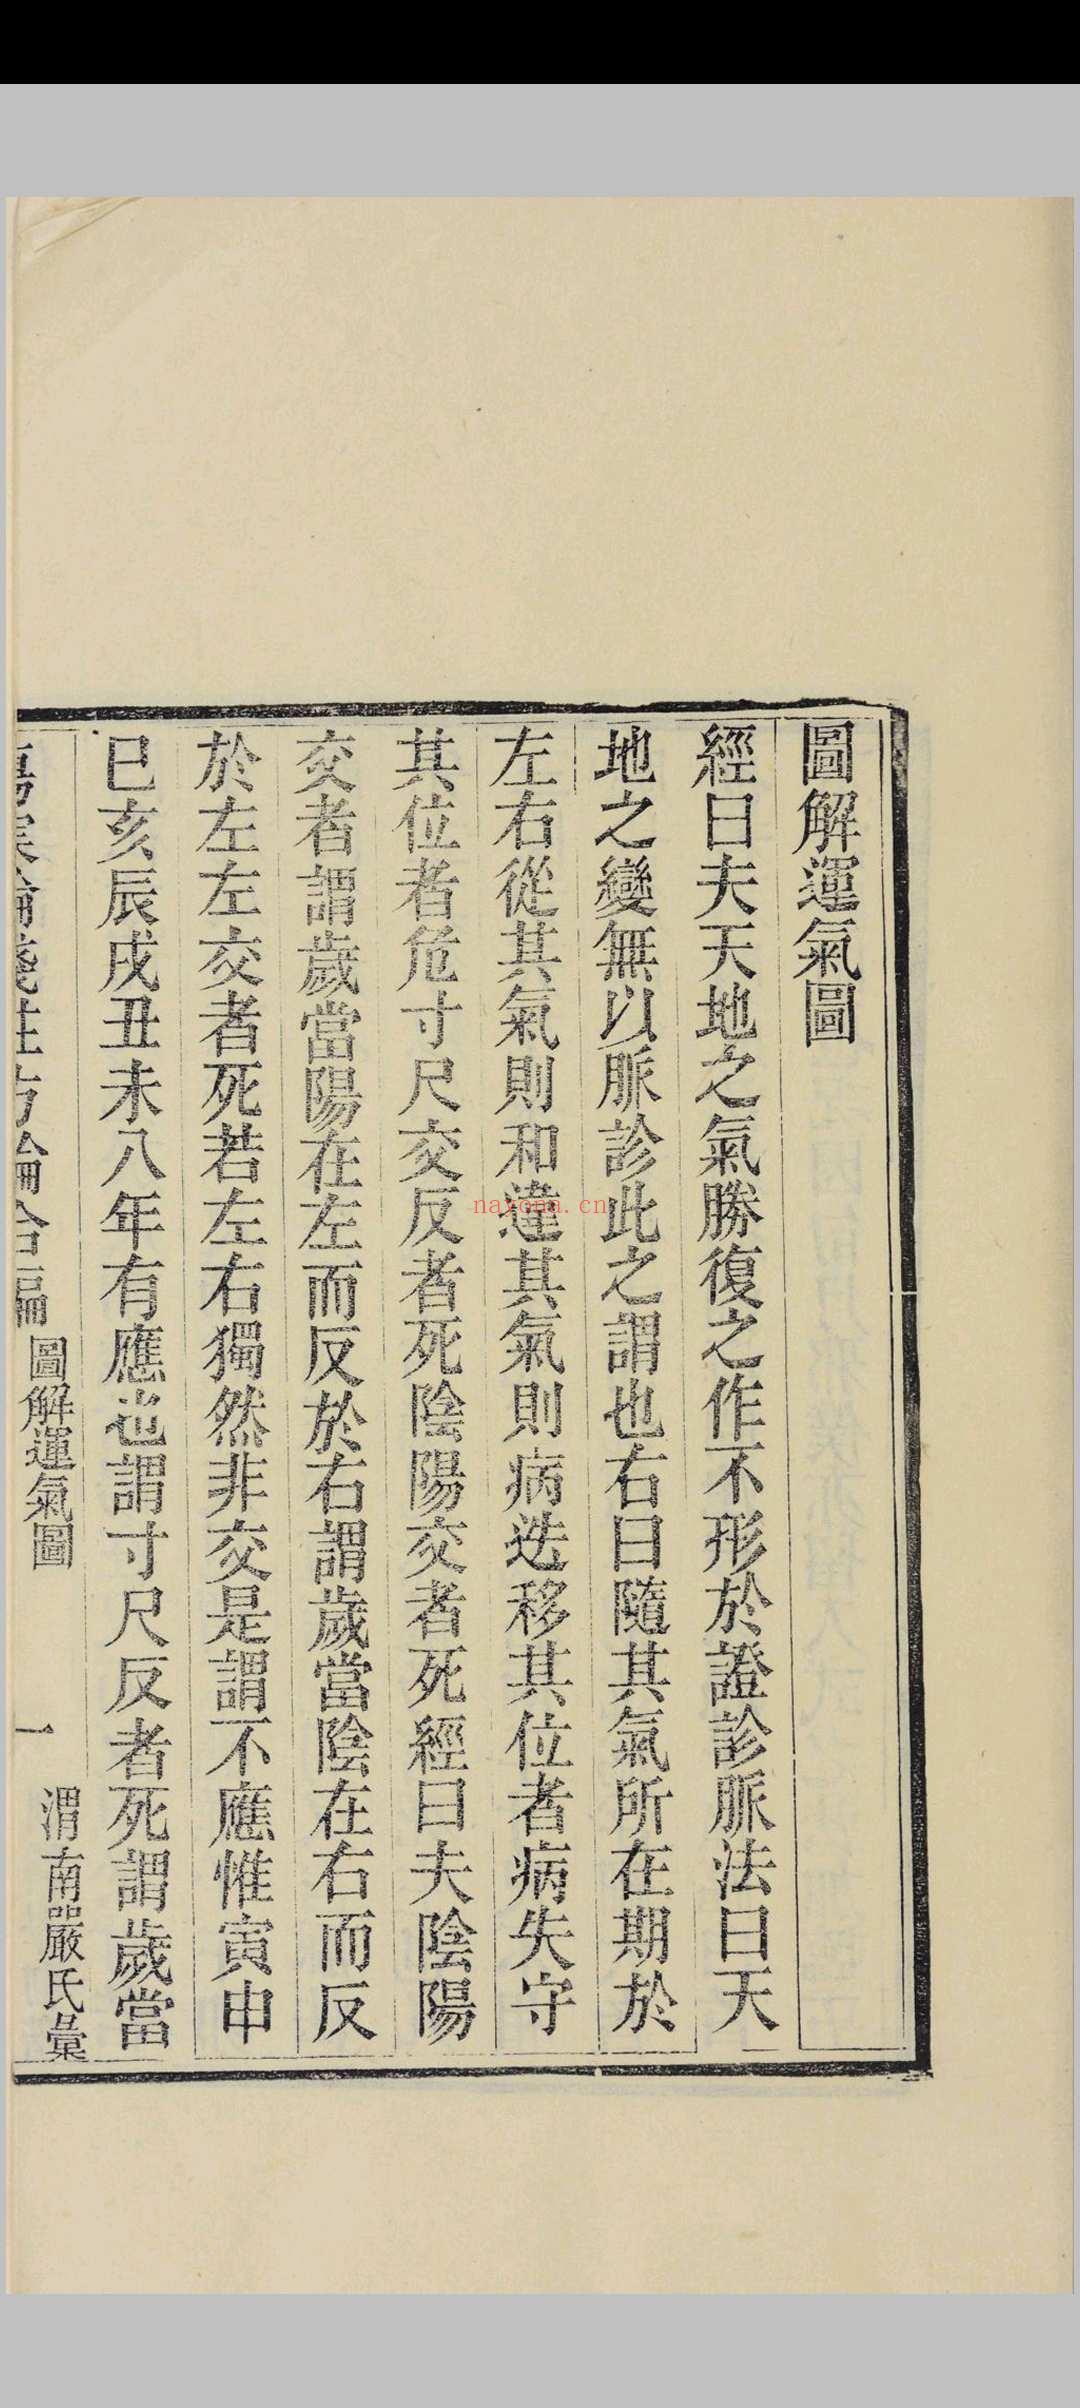 圖解運氣圖
經曰夫天地之氣勝復之作不形於證診脈法曰天
地之變無以脈診此之謂也右曰隨其氣所在期於
左右從其氣則和違其氣則病迭移其位者病失守
其位者危寸尺交反者死陰陽交者死經曰夫陰陽
交者謂歲當陽在左而反於右謂歲當陰在右而反
於左左交者死若左右獨然非交是謂不應惟寅申
巳亥辰戌丑未八年有應也謂寸尺反者死謂歲當
傷寒論淺註方論合編 圖解運氣圖 一 渭南嚴氏彙
nayona.cn